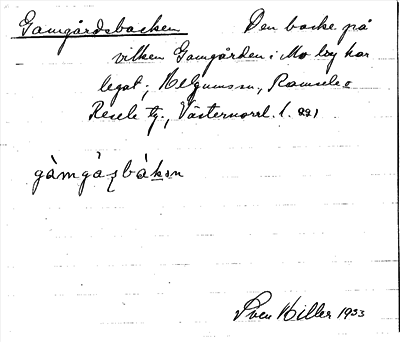 Gamgårdsbacken Den backe på
vilken Gamgården i Mo by har
legat; Helgumssn, Ramsele o
Resele tg., Västernorrl. l.
gàmgåẓbákən
Sven Hiller 1933